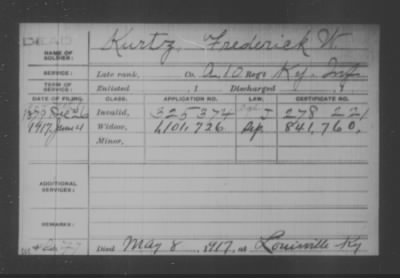 DEAD
NAME OF SOLDIER: Kurtz, Frederick W.
SERVICE: Late rank, Co. A, 10 Reg't Ky. Inf
TERM OF SERVICE: Enlisted , 1 Discharged , 1
DATE OF FILING. CLASS. APPLICATION NO. LAW. CERTIFICATE NO.
1879 Dec 26 Invalid, 325374 278 221
1917 June 4 Widow, 1101,726 841,760.
Minor,
ADDITIONAL SERVICES:
REMARKS:
Died May 8, 1917, at Louisville Ky